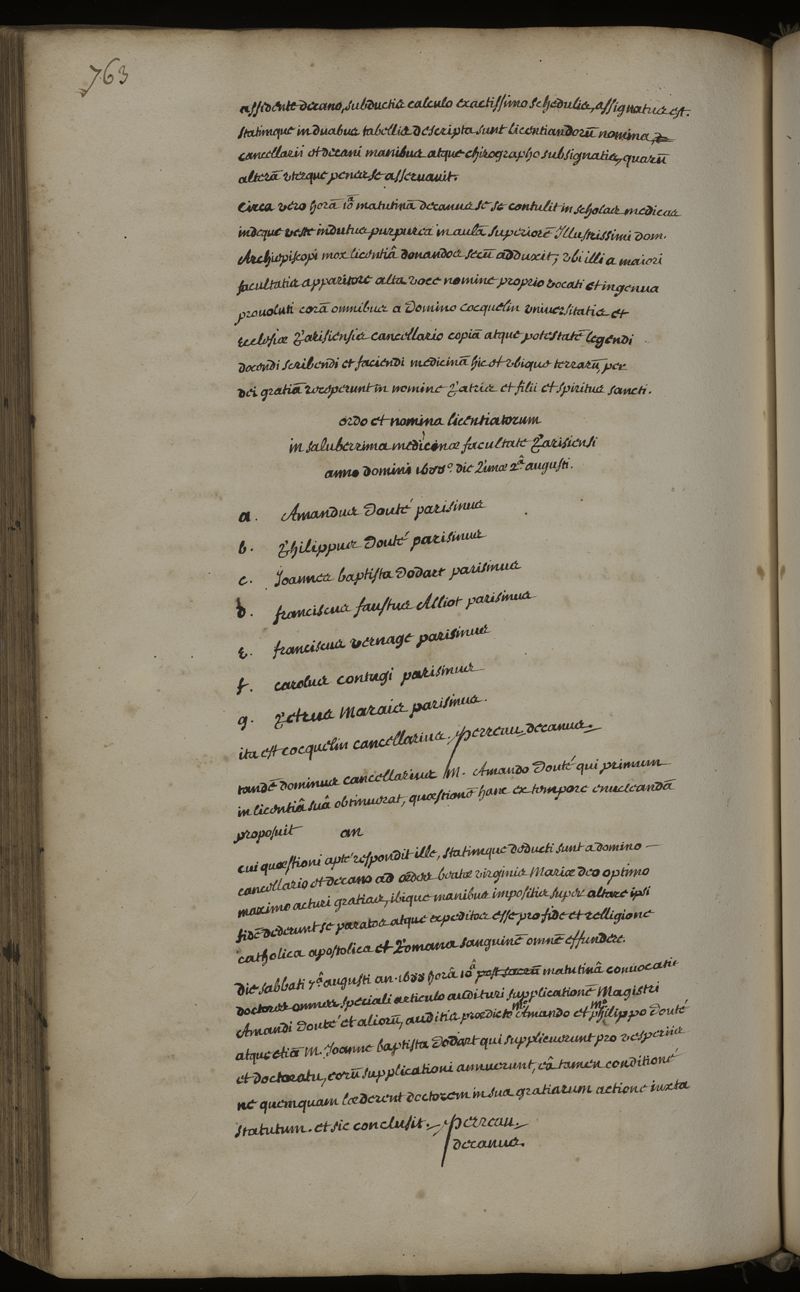 763
assidente decano, subductis calculo exactissimo schedulis, assignatus est.
statimque in duabus tabellis descripta sunt licentiandorū nomina,
cancellarii et decani manibus atque chirographo subsignatis, quarū
alterā vterque penes se asseruauit.
Circa vero horā 10ā matutinā decanus se se contulit in scholas medicas
indeque veste indutus purpurea in aulā superiorē Illustrissimi Dom.
Archiepiscopi mox licentiâ donandos secū adduxit; vbi illi a maiori
facultatis apparitore alta voce nomine proprio vocati et in genua
prouoluti corā omnibus a Domino Cocquelin vniuersitatis et
ecclesiæ Parisiensis cancellario copiā atque potestatē legendi
docendi scribendi et faciendi medicinā hic et vbique terrarū per
dei gratiā receperunt in nomine Patris et filii et spiritus sancti.
ordo et nomina licentiatorum
in saluberrima medicinæ facultate Parisiensi
anno domini 1688° die Lunæ 2ā augusti.
a. Amandus Douté parisinus
b. Philippus Douté parisinus
c. Joannes baptista Dodart parisinus
d. franciscus faustus Alliot parisinus
e. franciscus vernage parisinus
f. carolus contugi parisinus
g. Petrus Marais parisinus.
ita est cocquelin cancellarius. Perreau decanus.
tandē dominus cancellarius M. Amando Douté qui primum
in licentiâ suâ obtinuerat, quæstionē hanc ex tempore enucleandā
proposuit an
cui quæstioni apte respondit ille, statimque deducti sunt a domino
cancellario et decano ad ædes beatæ virginis Mariæ deo optimo
maximo acturi gratias, ibique manibus impositis super altare ipsi
fidē dederunt se paratos atque expeditos esse pro fide et relligione
catholica apostolica et Romana sanguinē omnē effundere.
Die sabbati 7ā augusti an. 1688 horâ 10ā post sacrū matutinâ conuocati
doctores omnes speciali articulo audituri supplicationē Magistri
Amandi Douté et aliorū, auditis prædicto mro Amando et mro philippo Douté
atque etiā M. Joanne baptista Dodart qui supplicuerunt pro vesperiis
et doctoratu, eorū supplicationi annuerunt, eâ tamen conditionē
ne quemquam læderent doctorem in sua gratiarum actione iuxta
statutum. et sic conclusit. Perreau.
decanus.